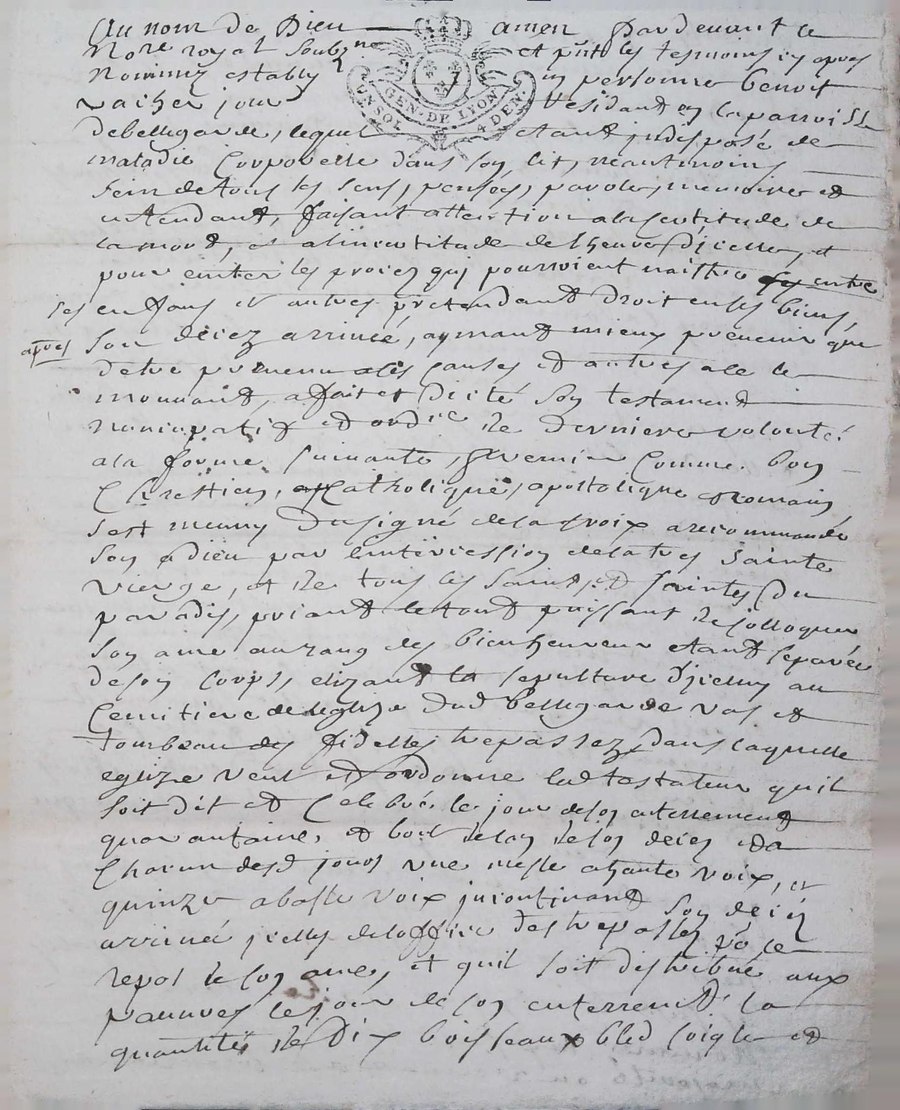 Au nom de Dieu amen Pardevant le
No.re royal soub.ne et p.nts les tesmoins cy apres
Nommez estably en personne benoit
vacher jour residant en la parroisse
GEN. DE LYON
UN SOL 4 DEN.
de bellegarde, lequel etant indisposé de
maladie Corporelle dans son lit, neautmoins
sein de tous les sens, pensées, parole, memoire et
entendant, faisant attention a la sertitude de
la mort, et a lincertitude de lheure Dicelle, et
pour eviter les proces qui pourroient naistre entre
ses enfans et autres pretendant droit en ses biens
apres son decez arrivée, aymant mieux prevenir que
detre prevenu a les causes et autres a ce le
mouvant, a fait et Dicté son testament
noncupatif et ordre de derniere volonté
a la forme suivante, premier Comme bon
Chrestien, Catholique, apostolique Romain,
sest muny du signe de la croix a recommandé
son a dieu par lintercession de la tres sainte
vierge, et de tous les saints et saintes du
paradis, priant le tout puissant de colloquer
son ame au rang des bienheureux etant separée
de son corps elizant la sepulture Dicelluy au
Cemitiere de leglize dud bellegarde vas et
tombeau des fidelles trepassez, dans laquelle
eglize veut et ordonne led testateur quil
soit dit et Celebré le jour de son enterrement
quarantaine, et bout de lan de son decez et a
Chacun desd jours une messe a haute voix, et
quinze a basse voix incontinant son decez
arrivé icelles de loffice des trepassez po le
repos de son ame, et quil soit distribué aux
pauvres le jour de son enterremt la
quantité de Dix boisseaux bled soigle et